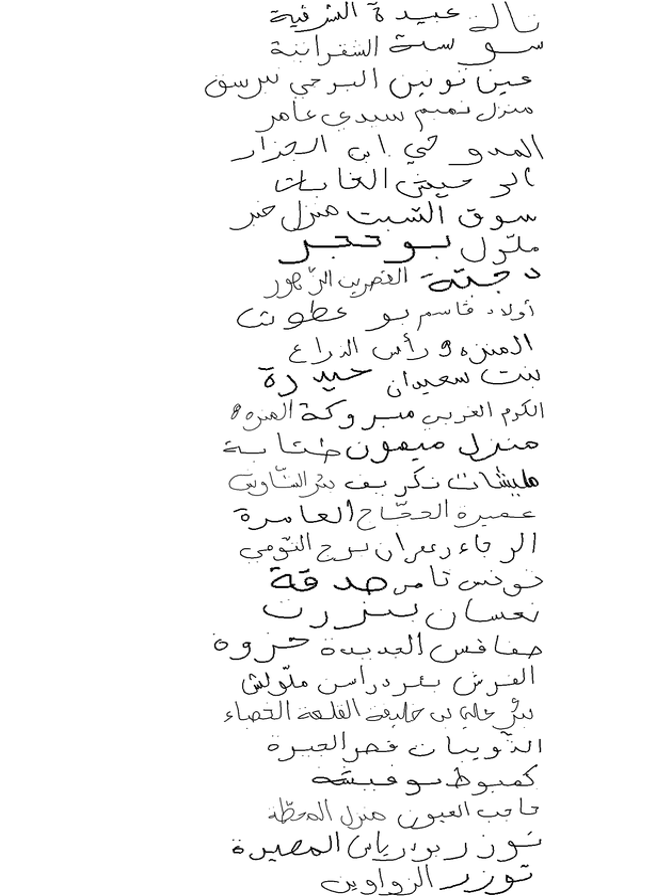 تالة عبيدة الشرقية
سوسة الشقرانية
عين تونين البرجي نبرسق
منزل تميم سيدي عامر
المدو حي ابن الجزار
الرحيش الغابات
سوق السبت منزل خير
ملّول بوحجر
دجتة القصرين الزّهور
أولاد قاسم بو عطوش
المنزه 9 رأس الذراع
بنت سعيدان حيدرة
الكرم الغربي مبروكة المنزه 8
منزل ميمون طبّابة
نكريف بئر الشّاوش
عميرة الحجّاج العامرة
الرجاء زعفران برج التّومي
تونس تامر صدقة
نعسان بنزرت
صفاقس الجديدة حزوة
الفرش بئر دراسن ملّولش
بئر علي بن خليفة القلعة الخصباء
الذّويبات قصر الجيرة
كمبوط بوفيشة
حاجب العيون منزل المحطّة
توزر بورياس المصيرة
توزر الزواوين